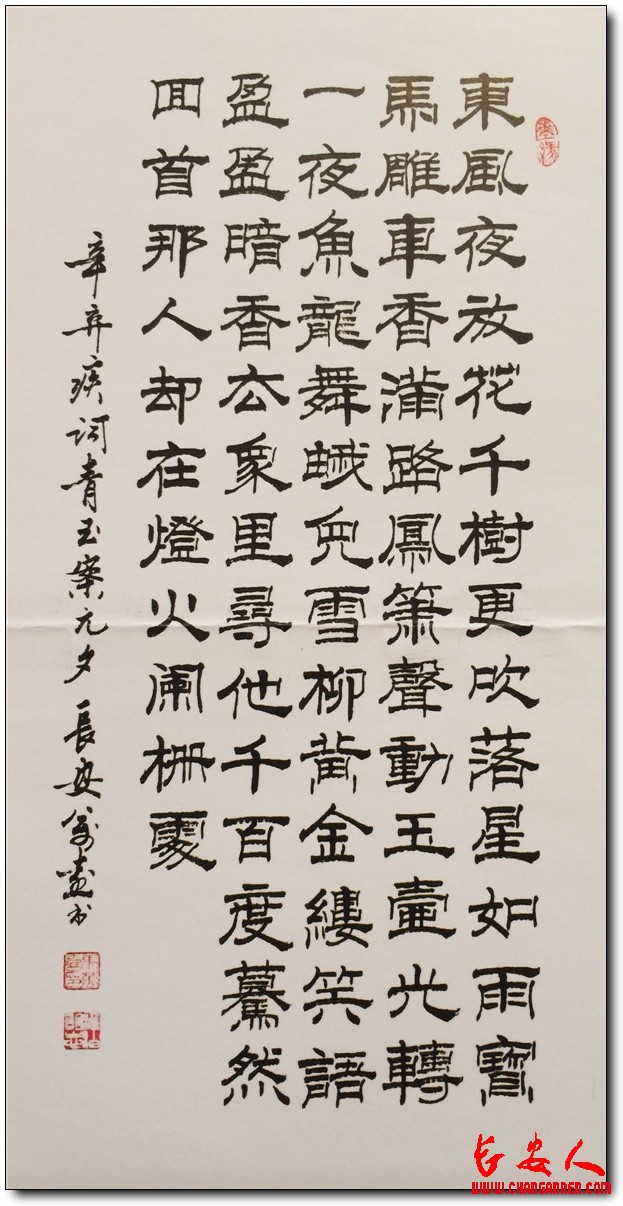 東風夜放花千樹更吹落星如雨寶
馬雕車香滿路鳳簫聲動玉壺光轉
一夜魚龍舞蛾兒雪柳黄金縷笑語
盈盈暗香去衆里尋他千百度驀然
回首那人却在燈火阑栅處
辛弃疾词青玉案元夕 長安书
长安人
WWW.CHANGANREN.COM